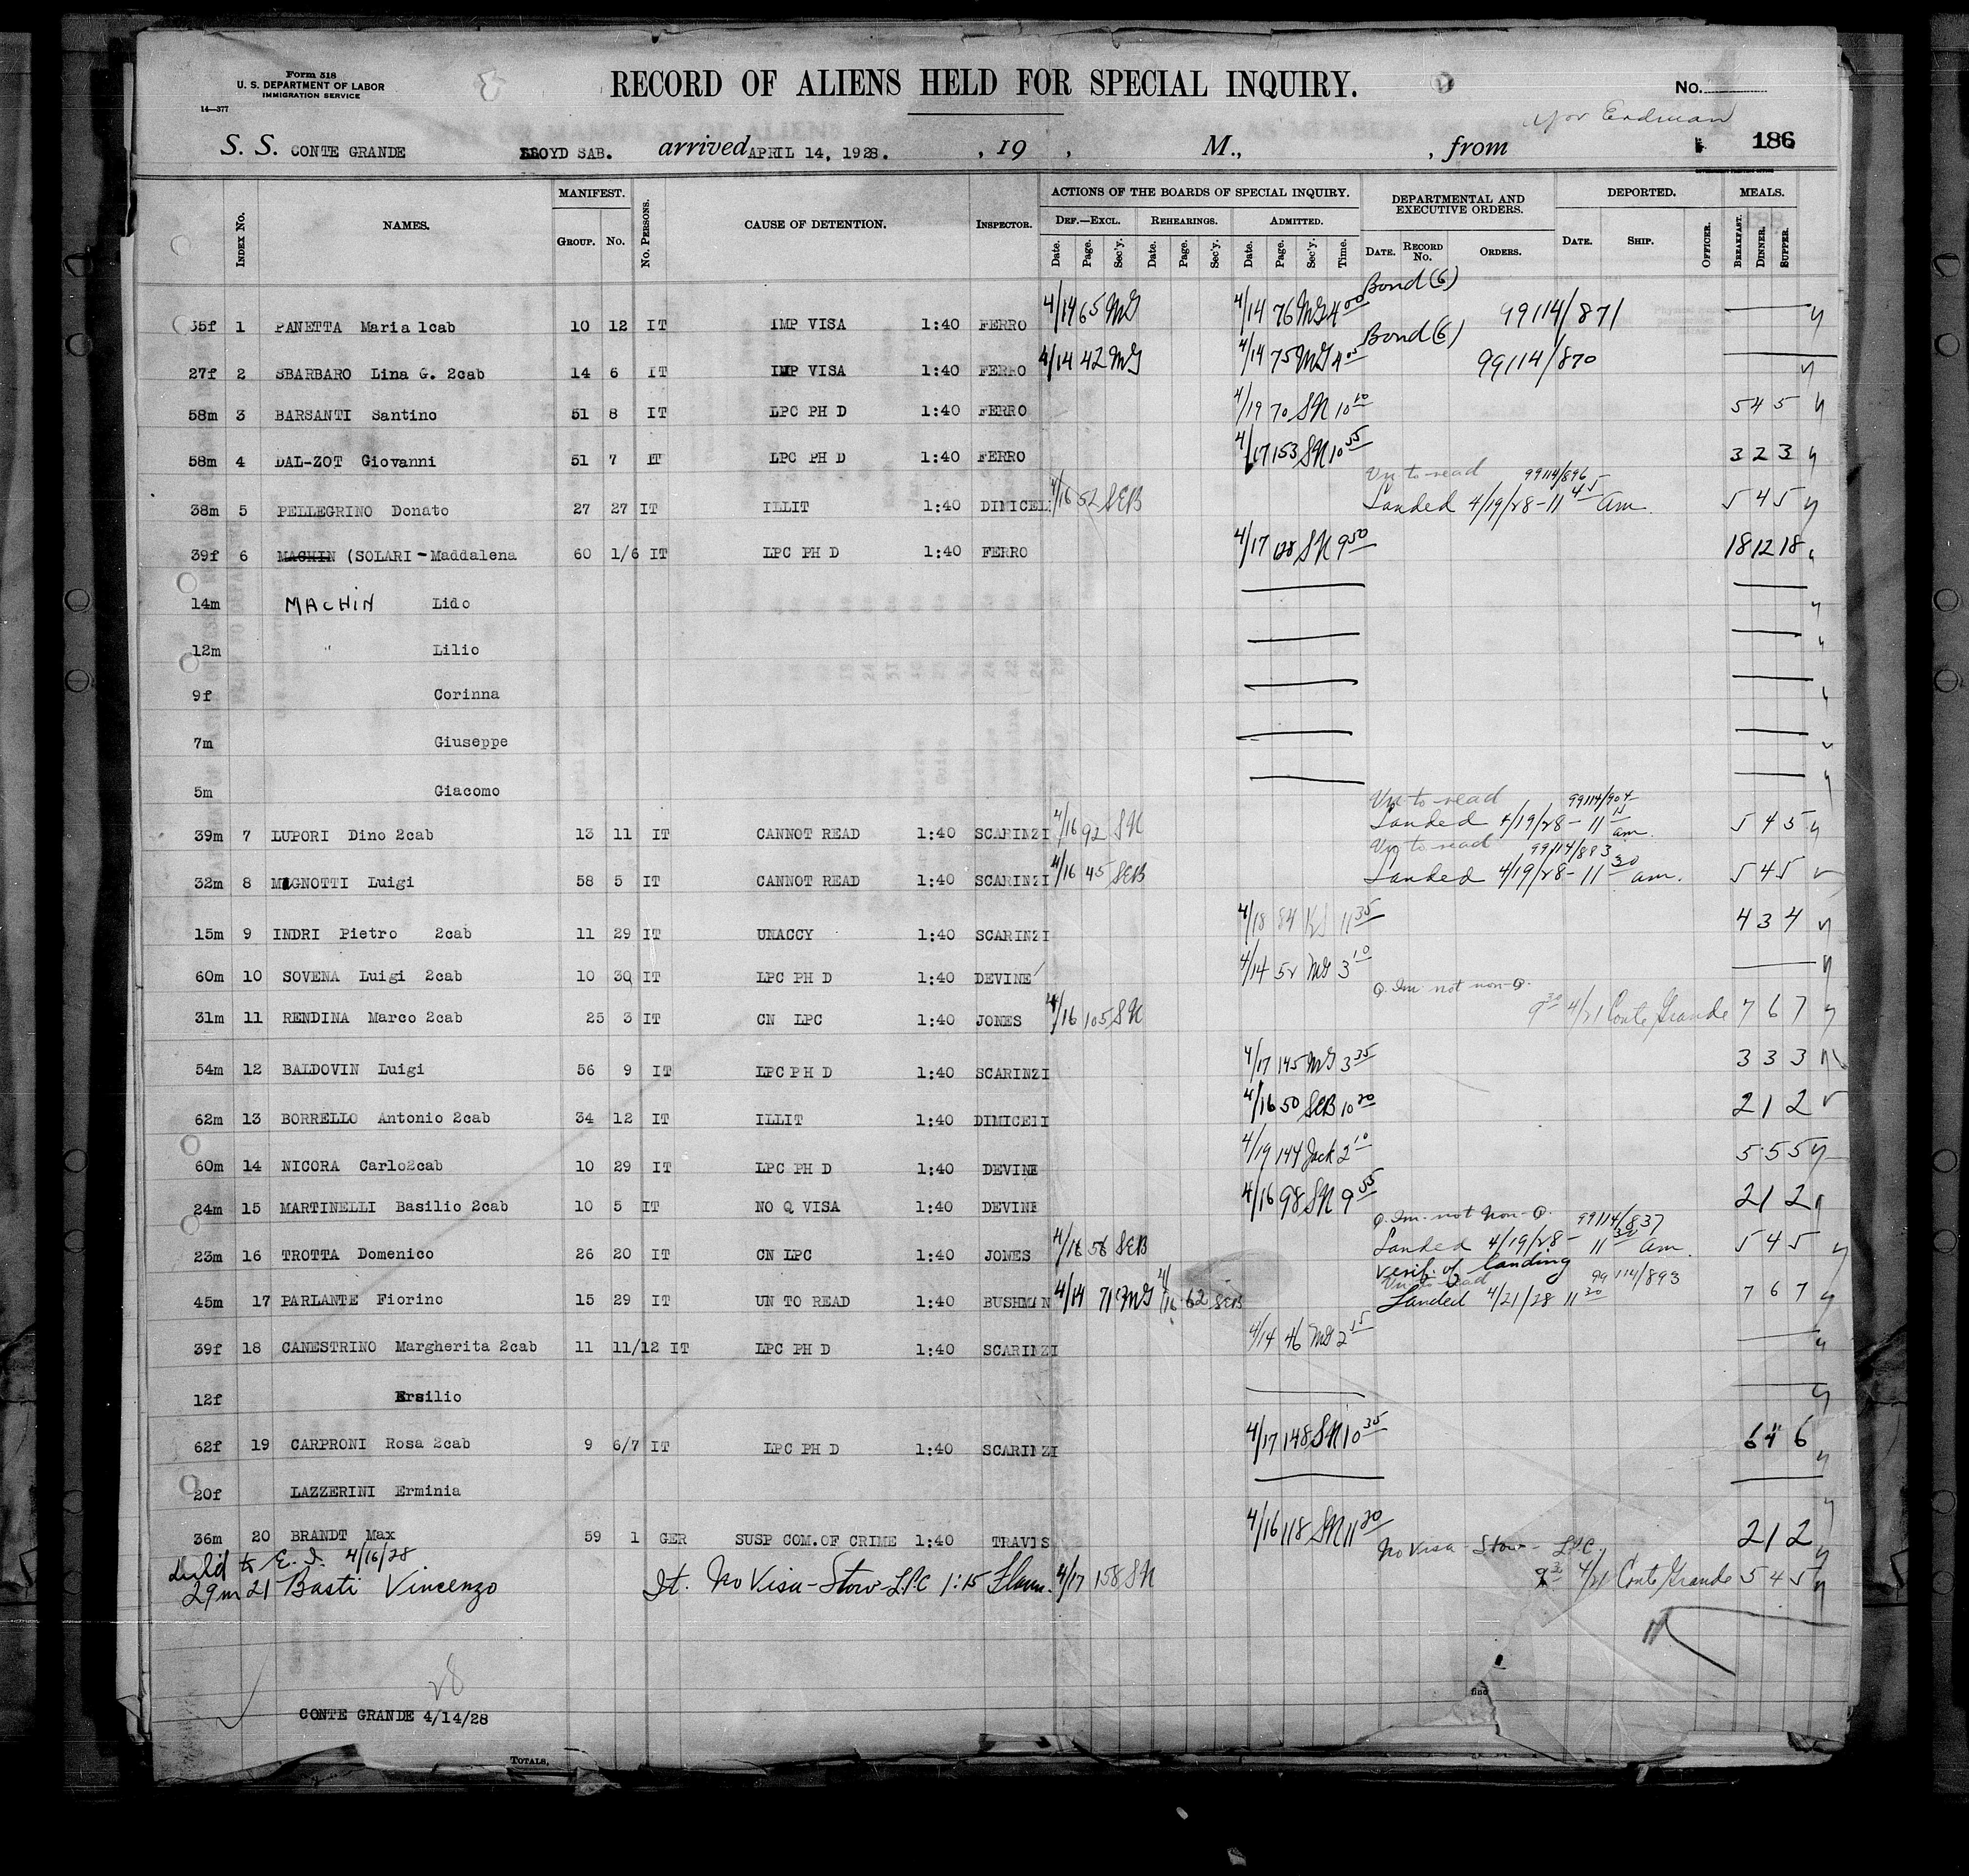 Form 518
U. S. DEPARTMENT OF LABOR
IMMIGRATION SERVICE
14—377
RECORD OF ALIENS HELD FOR SPECIAL INQUIRY.
No.
S. S. CONTE GRANDE LLOYD SAB. arrived APRIL 14, 1928. , 19 , M., , from 186
Index No. NAMES. MANIFEST. Group. No. No. Persons. CAUSE OF DETENTION. Inspector. ACTIONS OF THE BOARDS OF SPECIAL INQUIRY. DEPARTMENTAL AND EXECUTIVE ORDERS. DEPORTED. MEALS.
Def.—Excl. Rehearings. Admitted.
Date. Page. Sec'y. Date. Page. Sec'y. Date. Page. Sec'y. Time. Date. Record No. Orders. Date. Ship. Officer. Breakfast. Dinner. Supper.
Bond (6)
35f 1 PANETTA Maria 1cab 10 12 IT IMP VISA 1:40 FERRO 4/14 65 MG 4/14 76 MG 4 00 99114/871
Bond (6)
27f 2 SBARBARO Lina G. 2cab 14 6 IT IMP VISA 1:40 FERRO 4/14 42 MG 4/14 75 MG 4 05 99114/870
58m 3 BARSANTI Santino 51 8 IT LPC PH D 1:40 FERRO 4/19 70 SN 10 10 5 4 5
58m 4 DAL-ZOT Giovanni 51 7 IT LPC PH D 1:40 FERRO 4/17 153 SN 10 55 3 2 3
Un to read 99114/896
38m 5 PELLEGRINO Donato 27 27 IT ILLIT 1:40 DIMICEL 4/16 52 SEB Landed 4/19/28 - 11 45 am. 5 4 5
39f 6 MACHIN (SOLARI - Maddalena 60 1/6 IT LPC PH D 1:40 FERRO 4/17 128 SN 9 50 18 12 18
14m MACHIN Lido
12m " Lilio
9f Corinna
7m Giuseppe
5m Giacomo
Un to read 99114/904
39m 7 LUPORI Dino 2cab 13 11 IT CANNOT READ 1:40 SCARINZI 4/16 92 SN Landed 4/19/28 - 11 15 am. 5 4 5
Un to read 99114/893
32m 8 MIGNOTTI Luigi 58 5 IT CANNOT READ 1:40 SCARINZI 4/16 45 SEB Landed 4/19/28 - 11 30 am. 5 4 5
15m 9 INDRI Pietro 2cab 11 29 IT UNACCY 1:40 SCARINZI 4/18 84 11 35 4 3 4
60m 10 SOVENA Luigi 2cab 10 30 IT LPC PH D 1:40 DEVINE 4/14 52 MG 3 10
Q. Im. not non-Q.
31m 11 RENDINA Marco 2cab 25 3 IT CN LPC 1:40 JONES 4/16 105 SN 9 30 4/21 Conte Grande 7 6 7
54m 12 BALDOVIN Luigi 56 9 IT LPC PH D 1:40 SCARINZI 4/17 145 MG 3 35 3 3 3
62m 13 BORRELLO Antonio 2cab 34 12 IT ILLIT 1:40 DIMICEII 4/16 50 SEB 10 20 2 1 2
60m 14 NICORA Carlo2cab 10 29 IT LPC PH D 1:40 DEVINE 4/19 144 Jack 2 10 5 5 5
24m 15 MARTINELLI Basilio 2cab 10 5 IT NO Q VISA 1:40 DEVINE 4/16 98 SN 9 55 2 1 2
Q. Im. not Non-Q. 99114/837
23m 16 TROTTA Domenico 26 20 IT CN LPC 1:40 JONES 4/16 56 SEB Landed 4/19/28 - 11 30 am. 5 4 5
verif. of landing
Un to read 99114/893
45m 17 PARLANTE Fiorino 15 29 IT UN TO READ 1:40 BUSHMAN 4/14 71 MG 4/16 62 SEB Landed 4/21/28 11 30 7 6 7
39f 18 CANESTRINO Margherita 2cab 11 11/12 IT LPC PH D 1:40 SCARINZI 4/14 46 MG 2 15
12f Ersilio
62f 19 CARPRONI Rosa 2cab 9 6/7 IT LPC PH D 1:40 SCARINZI 4/17 148 SN 10 35 6 4 6
20f LAZZERINI Erminia
36m 20 BRANDT Max 59 1 GER SUSP COM.OF CRIME 1:40 TRAVIS 4/16 118 SN 11 20 2 1 2
No Visa - Stow - LPC.
4/16/28
29m 21 Basti Vincenzo It. No Visa - Stow - LPC 1:15 4/17 158 SN 4/21 Conte Grande 5 4 5
28
CONTE GRANDE 4/14/28
Totals.